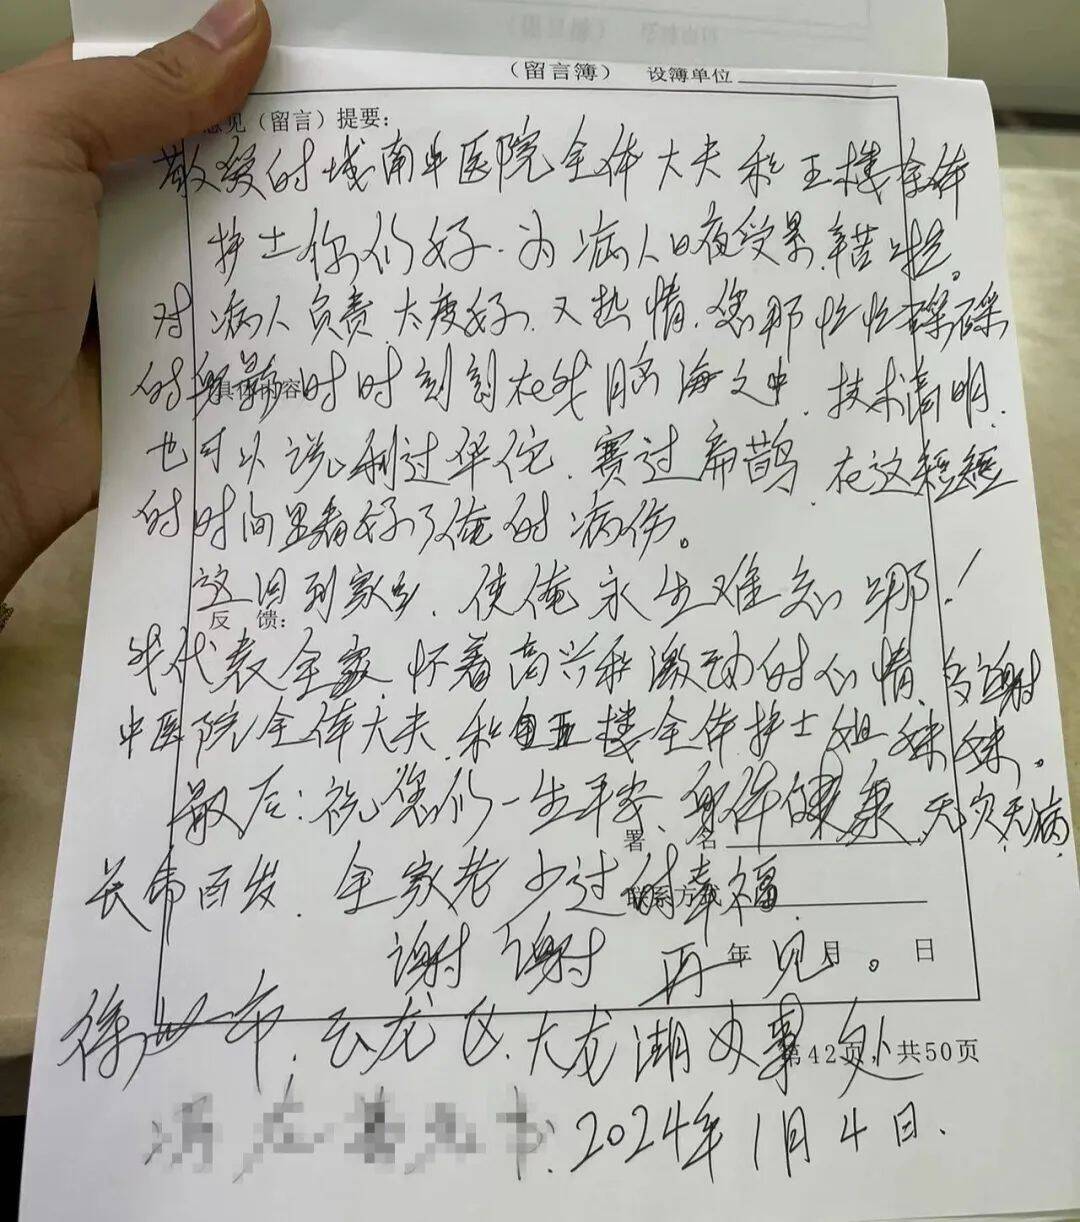 （留言簿） 设簿单位
意见（留言）提要：
敬爱的城南中医院全体大夫和五楼全体
护士你们好.为病人日夜受累.辛苦啦。
对病人负责.太度好.又热情.您那忙忙碌碌
的身影时时刻刻在我脑海之中.技术清明.
具体内容
也可以说利过华佗.赛过扁鹊.在这短短
的时间里看好了俺的病伤。
这回到家乡.使俺永生难忘哪！
反 馈：
我代表全家.怀着高兴和激动的心情.多谢
中医院全体大夫.和五楼全体护士姐妹妹。
最后：祝您们一生平安.身体健康.无灾无病.
署 名
长命百发.全家老少过的幸福.
联系方式
谢谢 再见。
年 月 日
徐州市.云龙区.大龙湖办事处
第42页，共50页
书.2024年1月4日.